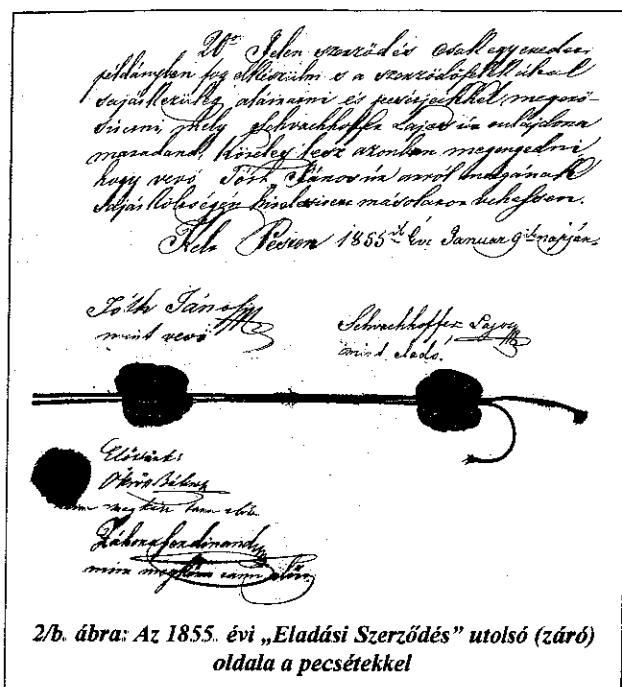 20° Jelen szerződés csak egy eredeti
példányban fog elkészülni s a szerződőfelek által
sajátkezüleg aláiratni és pecsétjeikkel megerő-
síttetni, mely Schvachhoffer Lajos úr tulajdona
maradand, köteles lesz azonban megengedni
hogy vevő Tóth János úr arról magának
saját költségén másolatot vehessen.
Kelt Pesten 1855 évi Januar 9 napján.
Tóth János
mint vevő
Schvachhoffer Lajos
mint eladó
Előttünk:
mint megkért tanu
Záhora Ferdinand
mint megkért tanu
2/b. ábra: Az 1855. évi „Eladási Szerződés” utolsó (záró)
oldala a pecsétekkel